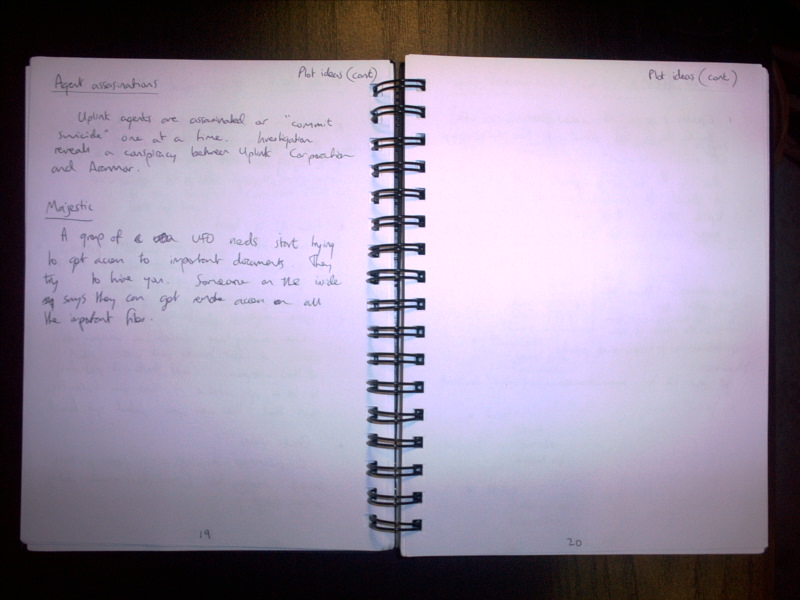 Plot ideas (cont)
Agent assasinations
Uplink agents are assasinated or "commit
suicide" one at a time. Investigation
reveals a conspiracy between Uplink Corporation
and Arunmor.
Majestic
A group of UFO nerds start trying
to get access to important documents. They
try to hire you. Someone on the inside
says they can get remote access on all
the important files.
19
Plot ideas (cont)
20